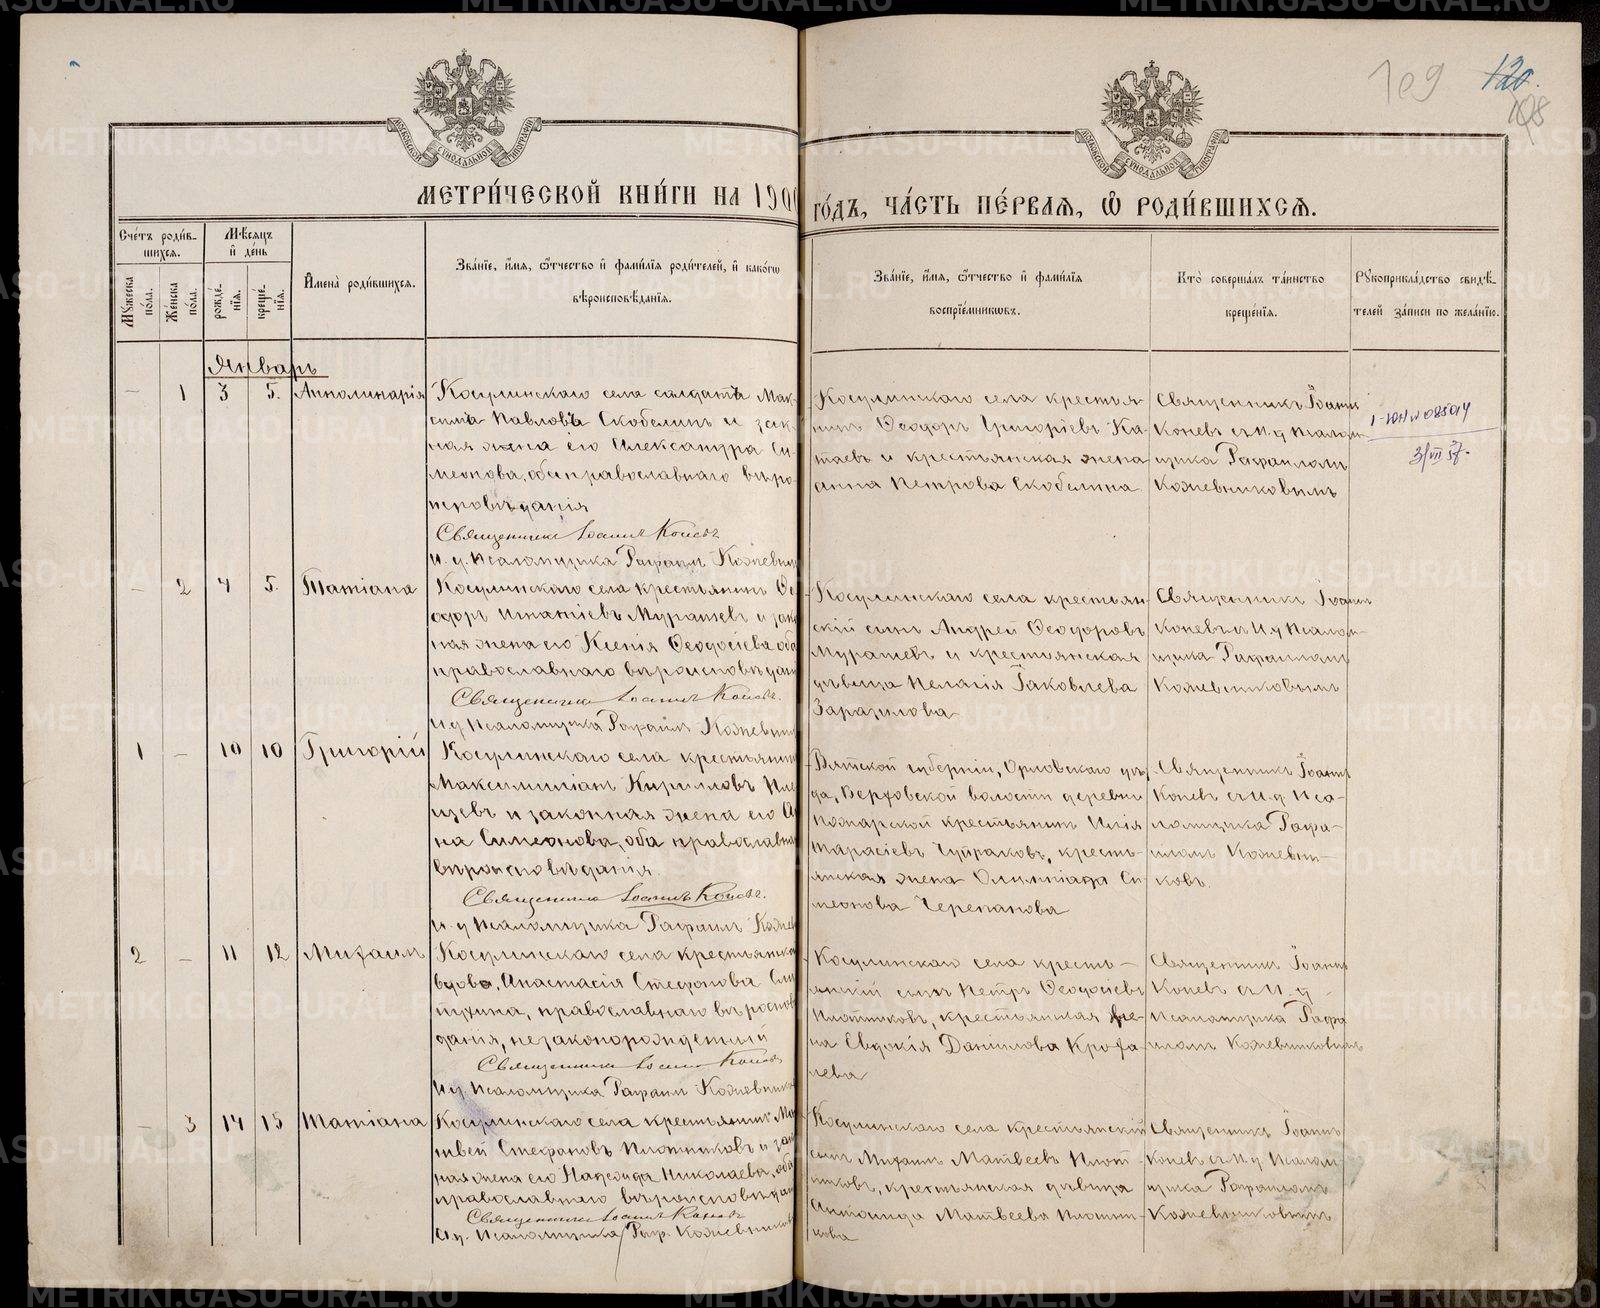 109
120.
108
МОСКОВСКОЙ СѴНОДАЛЬНОЙ ТИПОГРАФІИ
МОСКОВСКОЙ СѴНОДАЛЬНОЙ ТИПОГРАФІИ
МЕТРИ́ЧЕСКОЙ КНИ́ГИ НА 1900 ГО́ДЪ, ЧА́СТЬ ПЕ́РВАЯ, Ѡ РОДИ́ВШИХСЯ.
Сче́тъ роди́в-
шихся.
Мѣ́сяцъ
и҆ де́нь
Му́жеска
по́ла.
Же́нска
по́ла.
рожде́-
нїя.
креще́-
нїя.
И҆мена̀ роди́вшихся.
Зва́нїе, и҆́мя, ѻ҆́тчество и҆ фами́лїя роди́телей, и҆ како́гѡ
вѣроисповѣ́данїя.
Зва́нїе, и҆́мя, ѻ҆́тчество и҆ фами́лїя
воспрїе́мникѡвъ.
Кто̀ соверша́лъ та́инство
креще́нїя.
Рꙋкоприкла́дство свидѣ́-
телей за́писи по жела́нїю.
Январь
— 1 3 5. Апполинарія
Косулинскаго села солдатъ Мак-
симъ Павловъ Скобелинъ и зак
ная жена его Александра Си-
меонова, оба православнаго вѣро-
исповѣданія
Священникъ Іоаннъ Коневъ
И. д. Псаломщика Рафаилъ Кожевник
Косулинскаго села крестья-
нинъ Ѳеодоръ Григоріевъ Ка-
таевъ и крестьянская жена
Анна Петрова Скобелина
Священникъ Іоаннъ
Коневъ съ И. д Псалом-
щика Рафаиломъ
Кожевниковымъ
— 2 4 5. Татіана
Косулинскаго села крестьянинъ Ѳе
одоръ Игнатіевъ Мурашевъ и зак
ная жена его Ксенія Ѳеодосіева оба
православнаго вѣроисповѣдан
Священникъ Іоаннъ Коневъ.
И д Псаломщика Рафаилъ Кожевни
Косулинскаго села крестьян-
скій сынъ Андрей Ѳеодоровъ
Мурашевъ и крестьянская
дѣвица Пелагія Іаковлева
Священникъ Іоаннъ
Коневъ съ И. д Псалом-
щика Рафаиломъ
Кожевниковымъ
1 — 10 10 Григорій
Косулинскаго села крестьянин
Максимиліанъ Кирилловъ
и законная жена его А
на Симеонова, оба православна
вѣроисповѣданія.
Священникъ Іоаннъ Коневъ.
И. д Псаломщика Рафаилъ Кожев
Вятской губерніи, Орловскаго уѣз
да, Верховской волости деревни
крестьянинъ Илія
Тарасіевъ крестъ-
янская жена Олимпіада Си-
меонова Черепанова
Священникъ Іоаннъ
Коневъ съ И. д Пса-
ломщика Рафа-
иломъ Кожевни-
ковъ.
2 — 11 12 Михаилъ
Косулинскаго села крестьянска
вдова, Анастасія Стефанова
православнаго вѣроиспов
данія, незаконорожденный
Священникъ Іоаннъ Коневъ
И. д. Псаломщика Рафаилъ Кожевник
Косулинскаго села кресть-
янскій сынъ Петръ Ѳеодосіевъ
Плотниковъ, крестьянская же-
на Евдокія Данилова Крофа-
лева
Священникъ Іоаннъ
Коневъ съ И. д
Псаломщика Рафа
иломъ Кожевниковымъ
— 3 14 15 Татіана
Косулинскаго села крестьянинъ Ма
твей Стефановъ Плотниковъ и зак
ная жена его Надежда Николаева, оба
православнаго вѣроисповѣдан
Священникъ Іоаннъ Коневъ
И. д. Псаломщика Раф. Кожевников
Косулинскаго села крестьянскій
сынъ Михаилъ Матвеевъ Плот-
никовъ, крестьянская дѣвица
Антонида Матвеева Плотни-
кова
Священникъ Іоаннъ
Коневъ съ И. д Псалом-
щика Рафаиломъ
Кожевниковымъ
METRIKI.GASO-URAL.RU